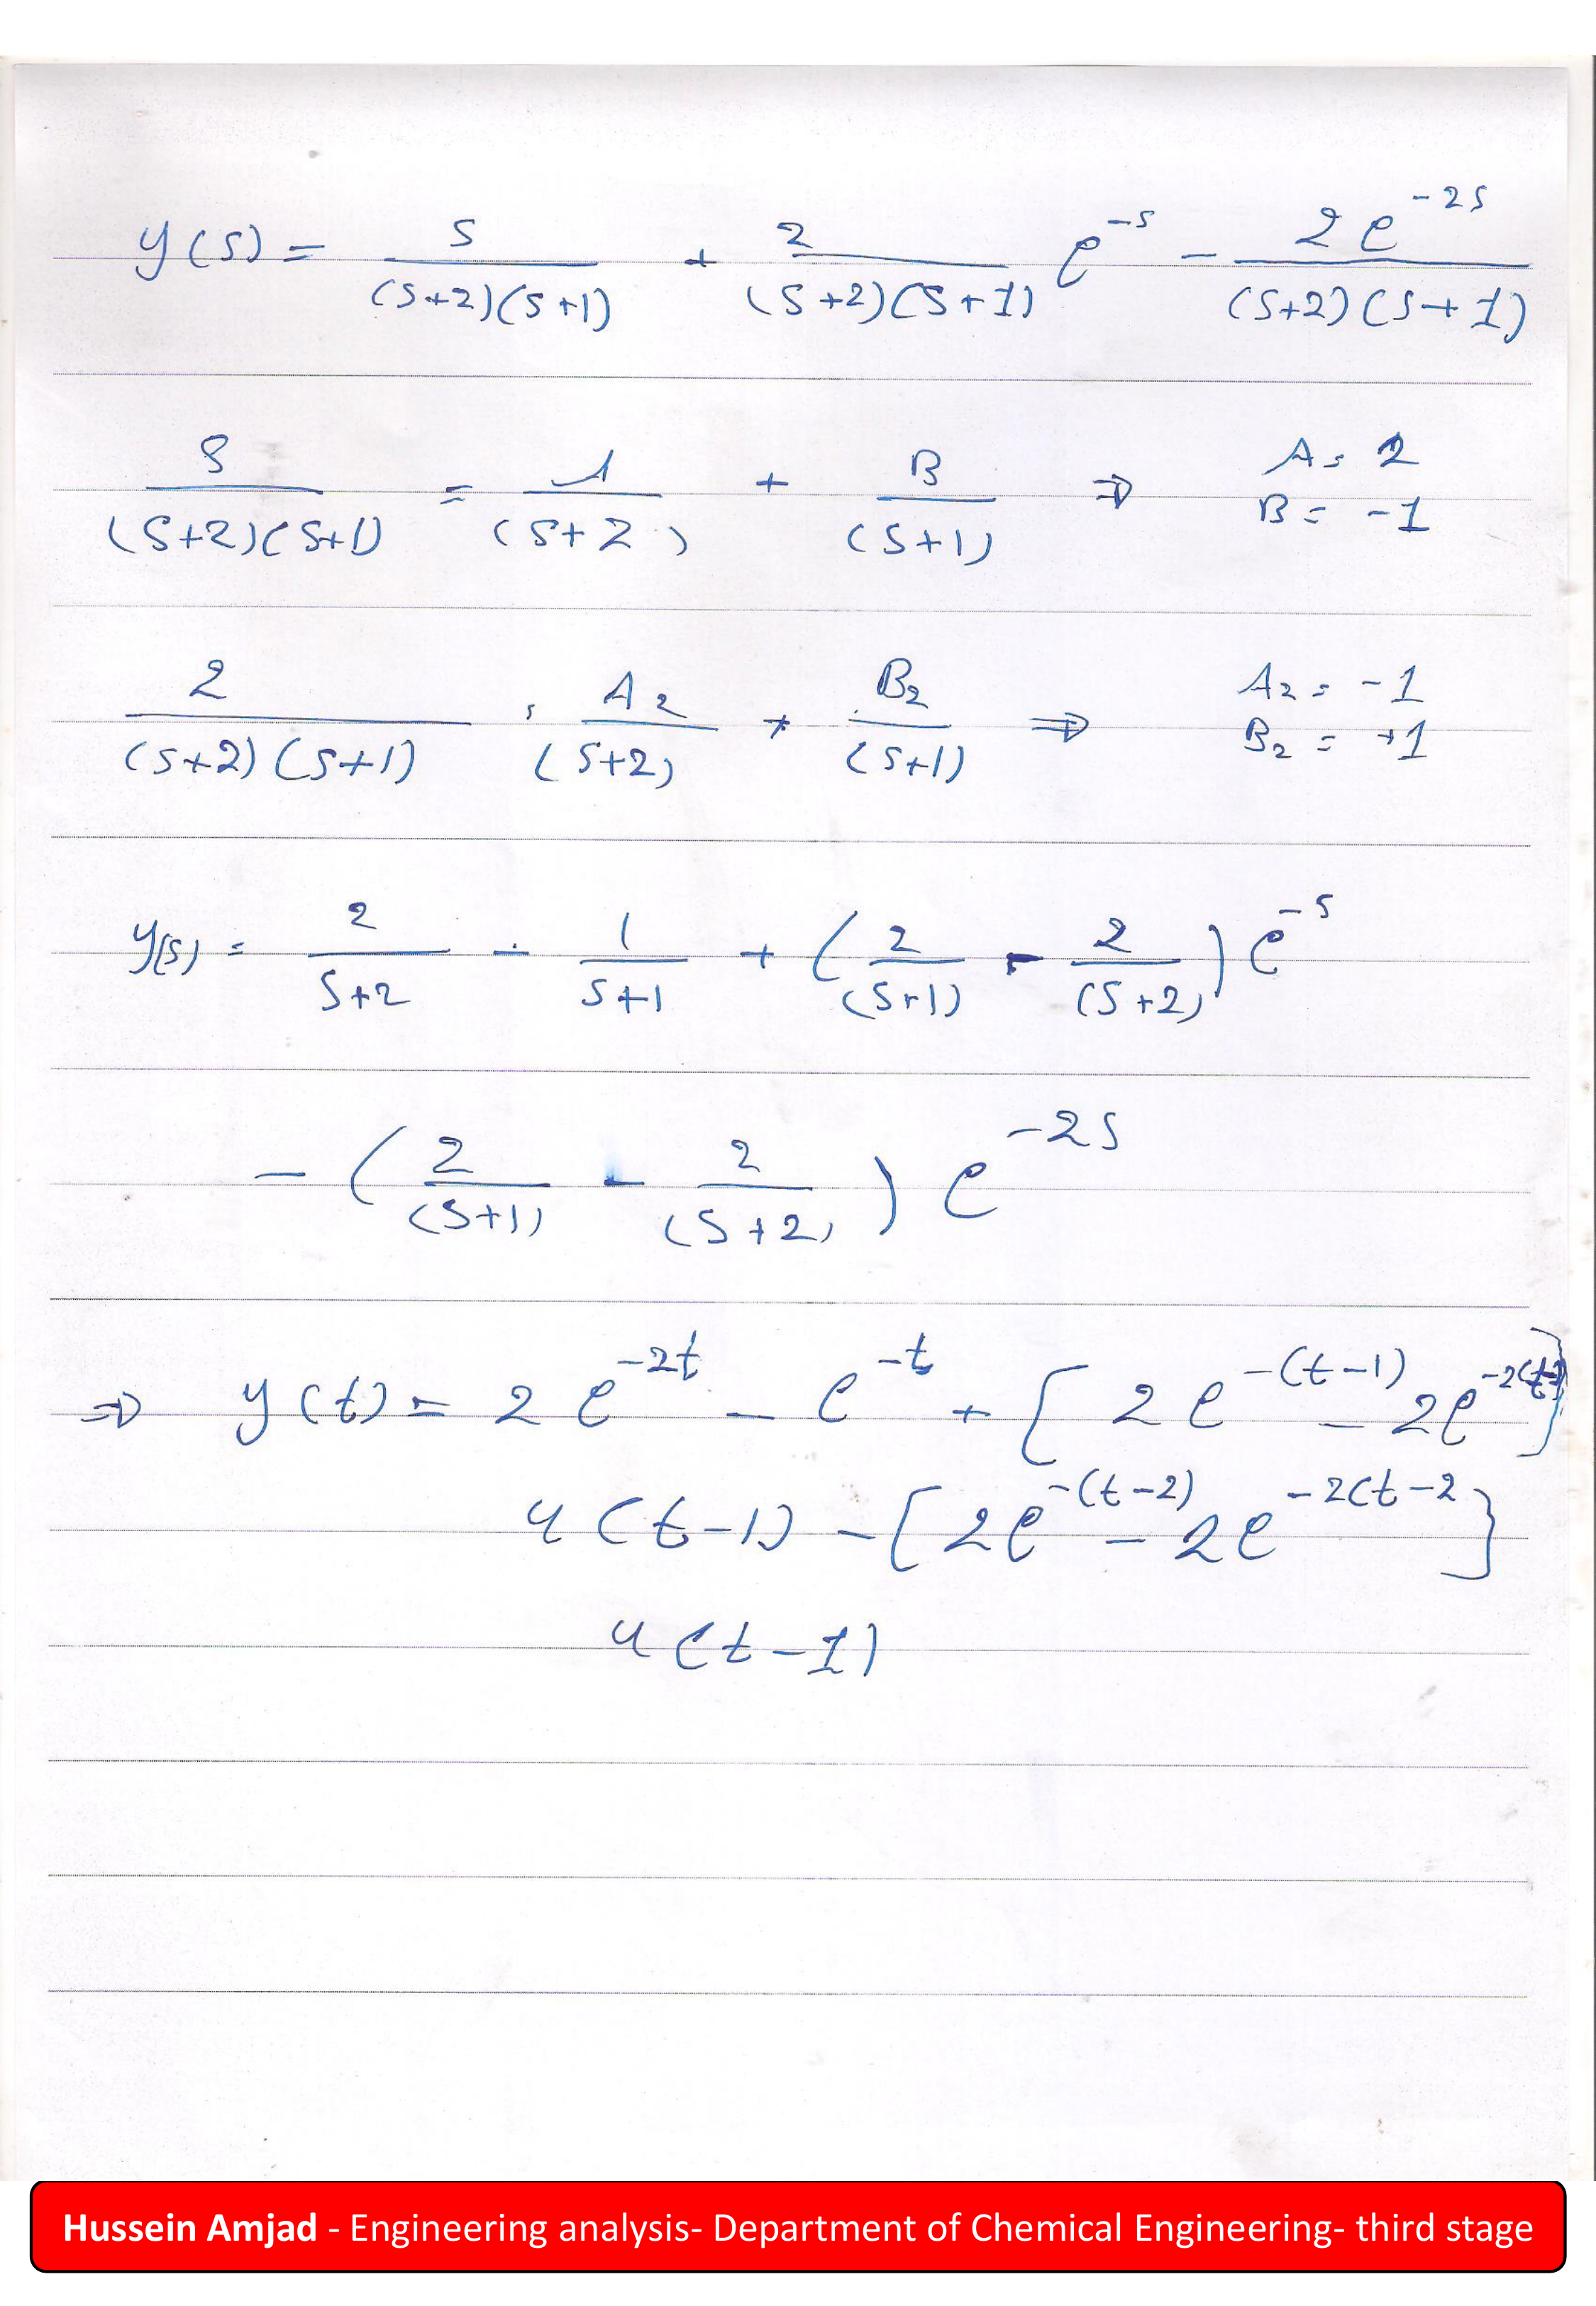 y(s) = s/((s+2)(s+1)) + 2/((s+2)(s+1)) e^-s - 2e^-2s/((s+2)(s+1))
s/((s+2)(s+1)) = A/(s+2) + B/(s+1) ⇒ A = 2 B = -1
2/((s+2)(s+1)) = A2/(s+2) + B2/(s+1) ⇒ A2 = -1 B2 = +1
y(s) = 2/(s+2) - 1/(s+1) + (2/(s+1) - 2/(s+2)) e^-s
- (2/(s+1) - 2/(s+2)) e^-2s
⇒ y(t) = 2e^-2t - e^-t + [2e^-(t-1) - 2e^-2(t-1)]
u(t-1) - [2e^-(t-2) - 2e^-2(t-2]
u(t-1)
Hussein Amjad - Engineering analysis- Department of Chemical Engineering- third stage